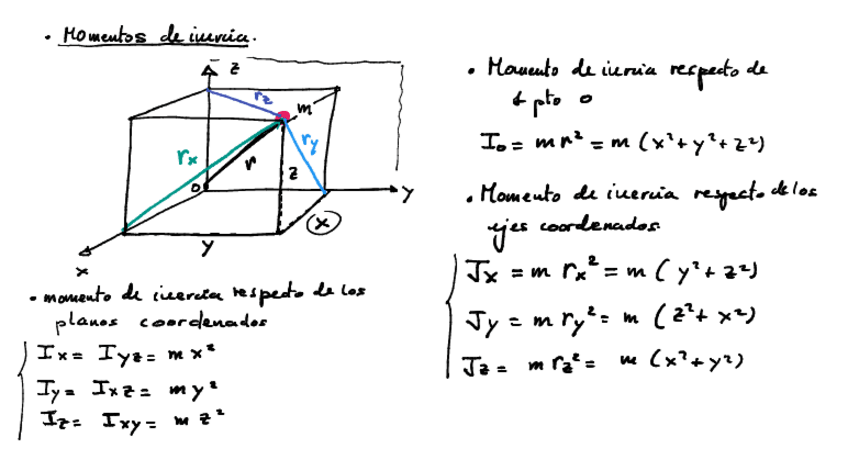 • Momentos de inercia.
z
rz
m
rx
ry
r
z
o
y
x
y
x
• momento de inercia respecto de los
planos coordenados
Ix = Iyz = m x²
Iy = Ixz = m y²
Iz = Ixy = m z²
• Momento de inercia respecto de
pto o
Io = m r² = m (x² + y² + z²)
• Momento de inercia respecto de los
ejes coordenados
Jx = m rx² = m (y² + z²)
Jy = m ry² = m (z² + x²)
Jz = m rz² = m (x² + y²)